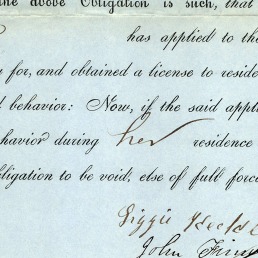 the above Obligation is such, that
has applied to the
for, and obtained a license to reside
behavior: Now, if the said appl
havior during her residence
bligation to be void; else of full force
John